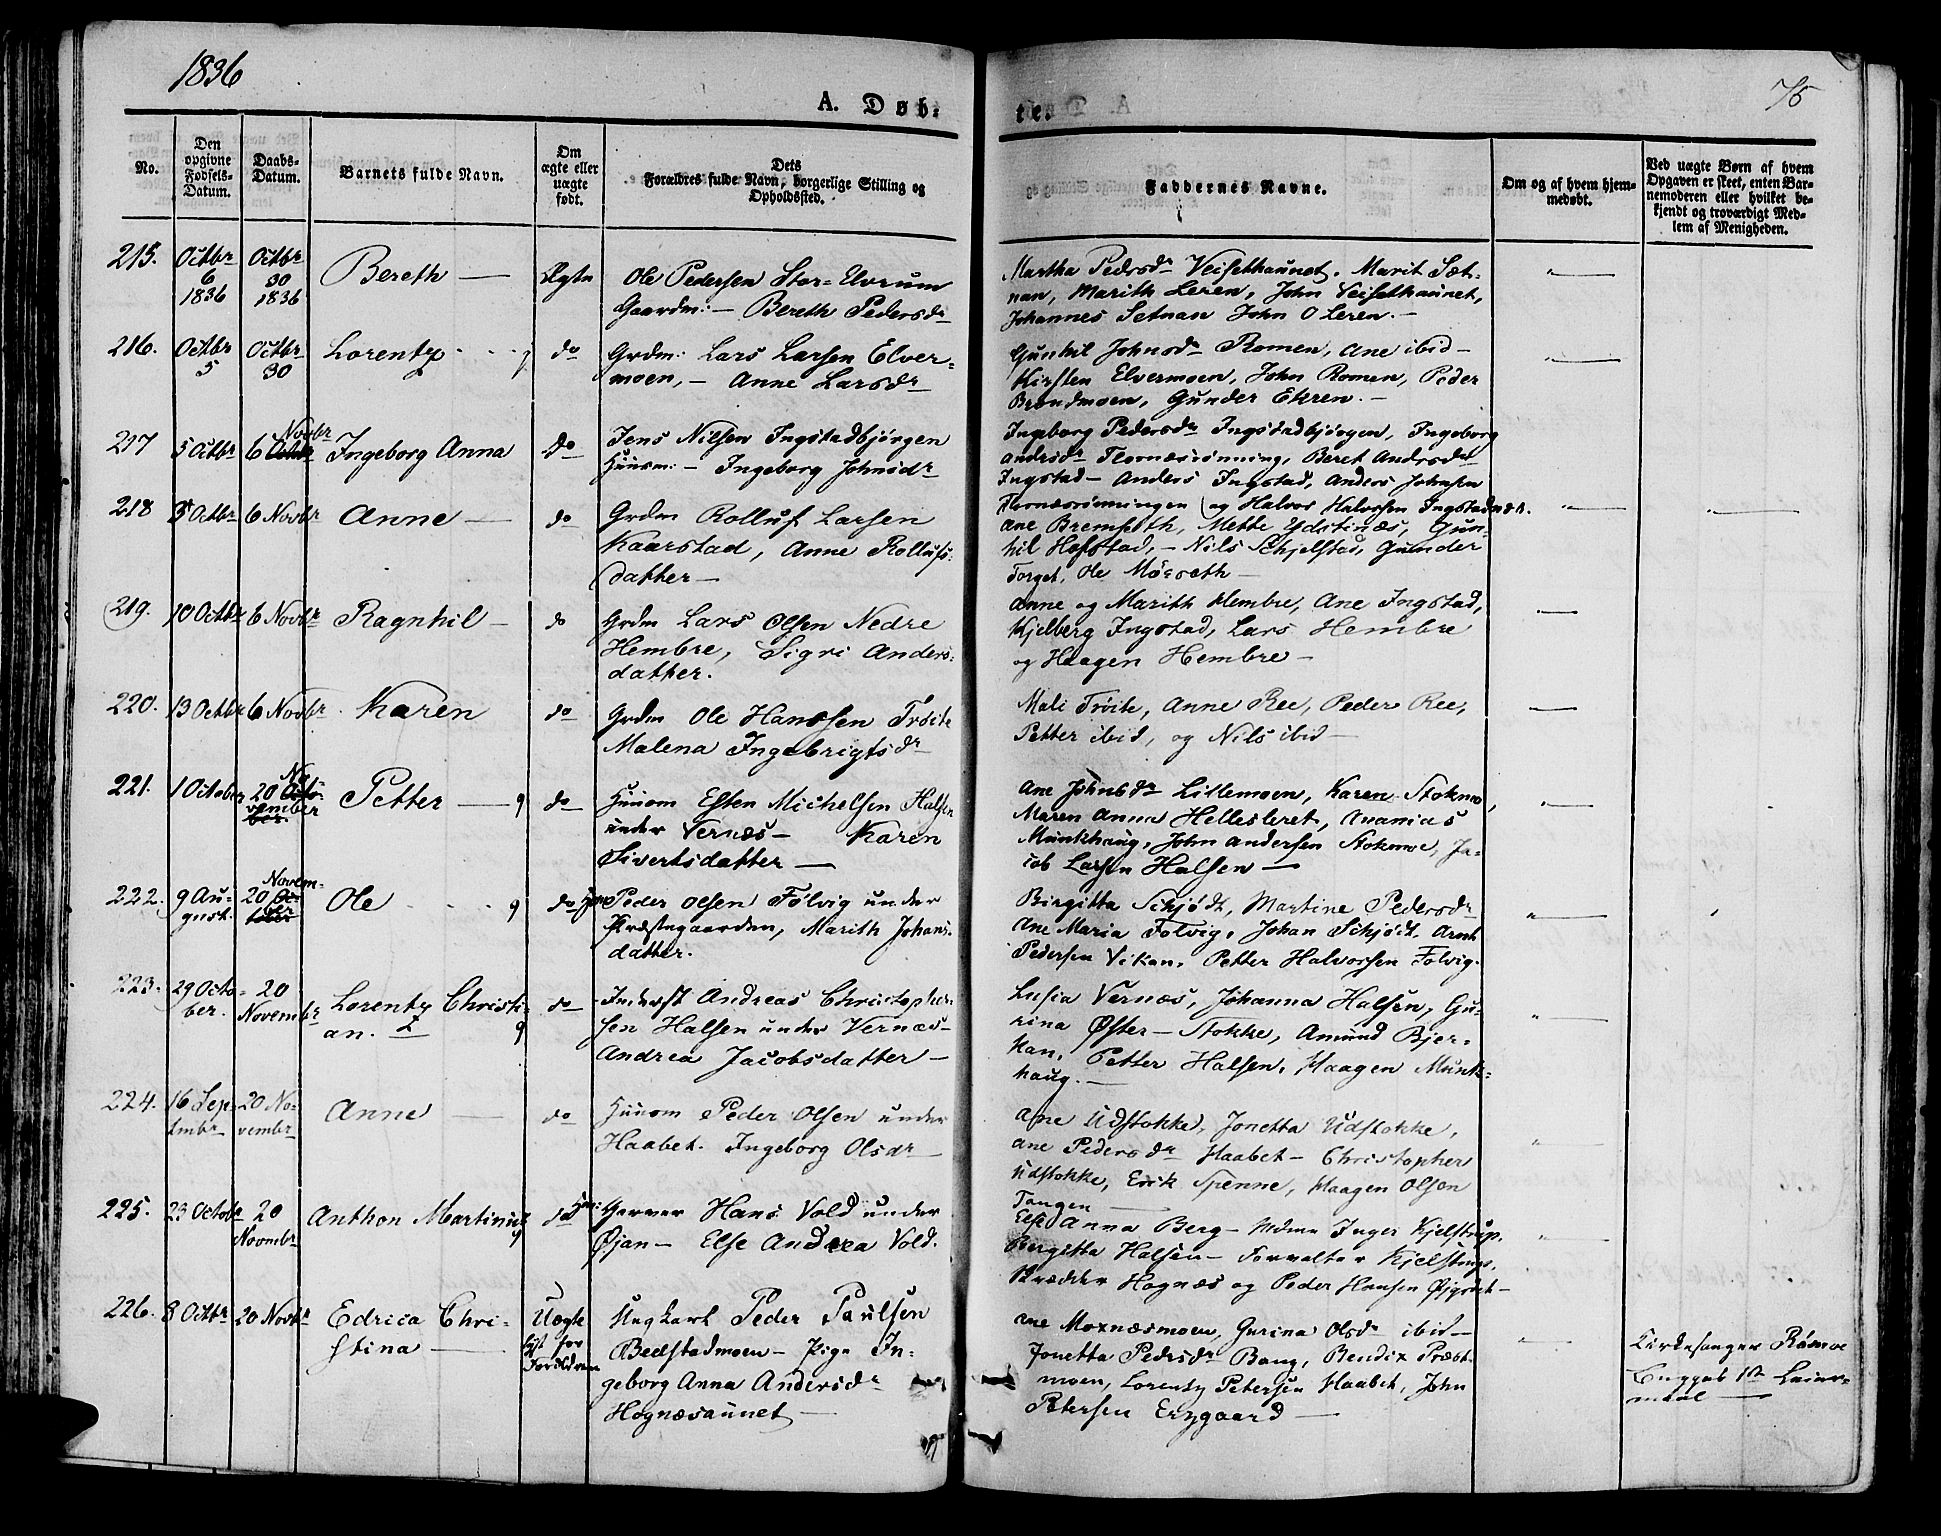 1836
76
A. Døb-
te.
No.
Den
opgivne
Fødsels-
Datum.
Daabs-
Datum.
Barnets fulde Navn.
Om
ægte eller
uægte
født.
Dets
Forældres fulde Navn, borgerlige Stilling og
Opholdssted.
Faddernes Navne.
Om og af hvem hjem-
medøbt.
Ved uægte Børn af hvem
Opgaven er skeet, enten Bar-
nemoderen eller hvilket be-
kjendt og troværdigt Med-
lem af Menigheden.
215.
Octbr
6
1836
Octbr
30
1836
Bereth —
Ægte
Ole Pedersen Stor-Elvrum
Gaardm: — Bereth Pedersdr
Martha Pedrsdr Veisethaunet. Marit Sæt-
nan, Marith Leren, John Veisethaunet,
Johannes Setnan John O Leren. —
216.
Octbr
5
Octbr
30
Lorentz
do
Grdm: Lars Larsen Elver-
moen, — Anne Larsdr
Gunhil Johnsdr Romen, Ane ibid —
Kirsten Elvermoen, John Romen, Peder
Brendmoen, Gunder Ekren. —
217
5 Octbr
6 Novbr
Ingeborg Anna
do
Jens Nilsen Ingstadbjørgen
Huusm: — Ingeborg Johnsdr
Ingeborg Pedersdr Ingstadbjørgen, Ingeborg
Andrsdr Flornæsrønning, Beret Andrsdr
Ingstad — Anders Ingstad, Anders Johnsen
Flornæsrønningen og Halvor Halvorsen Ingstad
218
5 Octbr
6 Novbr
Anne —
do
Grdm Rolluf Larsen
Kaarstad, Anne Rollufs-
datter —
Ane Bremseth, Mette Ydstinæs, Gun-
hil Hofstad, — Nils Schjelstad, Gunder
Torget, Ole Mørseth —
219.
10 Octbr
6 Novbr
Ragnhil —
do
Grdm Lars Olsen Nedre
Hembre, Sigri Anders-
datter.
Anne og Marith Hembre, Ane Ingstad,
Kjelberg Ingstad, Lars Hembre
og Haagen Hembre —
220.
13 Octbr
6 Novbr
Karen
do
Grdm Ole Hanssen Trøite
Malena Ingebrigtsdr
Mali Trøite, Anne Ree, Peder Ree,
Petter ibid, og Nils ibid —
221.
1 October
20 No-
vember
Petter —
do
Huusm Esten Michelsen Halsen
under Vernæs — Karen
Sivertsdatter —
Ane Johnsdr Lillemoen, Karen Stokmo,
Maren Anna Hellesleret, Ananias
Munkhaug, John Andersen Stokmoe, Ja-
cob Larsen Halsen —
222.
9 Au-
gust.
20 Novem-
Ole
do
Peder Olsen Følvig under
Præstegaarden, Marith Johans-
datter.
Birgitta Schjødt, Martine Pedersdr
Ane Maria Folvig, Johan Schjødt, Arnt
Pedersen Vikan, Petter Halvorsen Folvig.
223.
29 Octo-
ber.
20
Novembr
Lorentz Christi-
an.
do
Inderst Andreas Christopher-
sen Halsen under Vernæs —
Andrea Jacobsdatter —
Lusia Vernæs, Johanna Halsen, Gu-
rina Øster — Stokke, Amund Bjer-
kan, Petter Halsen, Haagen Munk-
haug. —
224.
16 Sep-
tmbr
20 No-
vembr
Anne —
do
Huusm Peder Olsen under
Haabet. Ingeborg Olsdr —
Ane Udstokke, Jonetta Udstokke,
Ane Pedersdr Haabet — Christopher
Udstokke, Erik Spenne, Haagen Olsen
Tangen —
225.
23 Octobr
20
Novmbr
Anthon Martinius
do
Garver Hans Vold under
Øjan — Else Andrea Vold.
Else Anna Berg — Mdme Inger Kjelstrup,
Bergitta Halsen — Forvalter Kjelstrup,
Skrædder Hognæs og Peder Hansen —
226.
8 Octbr
20 Novbr
Edrica Chri-
stina —
Uægte
for
Forældren
Ungkarl Peder Paulsen
Beistadmoen — Pige In-
geborg Anna Andersdr
Hognæsaunet —
Ane Moxnæsmoen, Gurina Olsdr ibid —
Jonetta Pedrsdr Bang, Bendix Præst-
moen, Lorentz Petersen Haabet, John
Petersen —
Kirkesanger